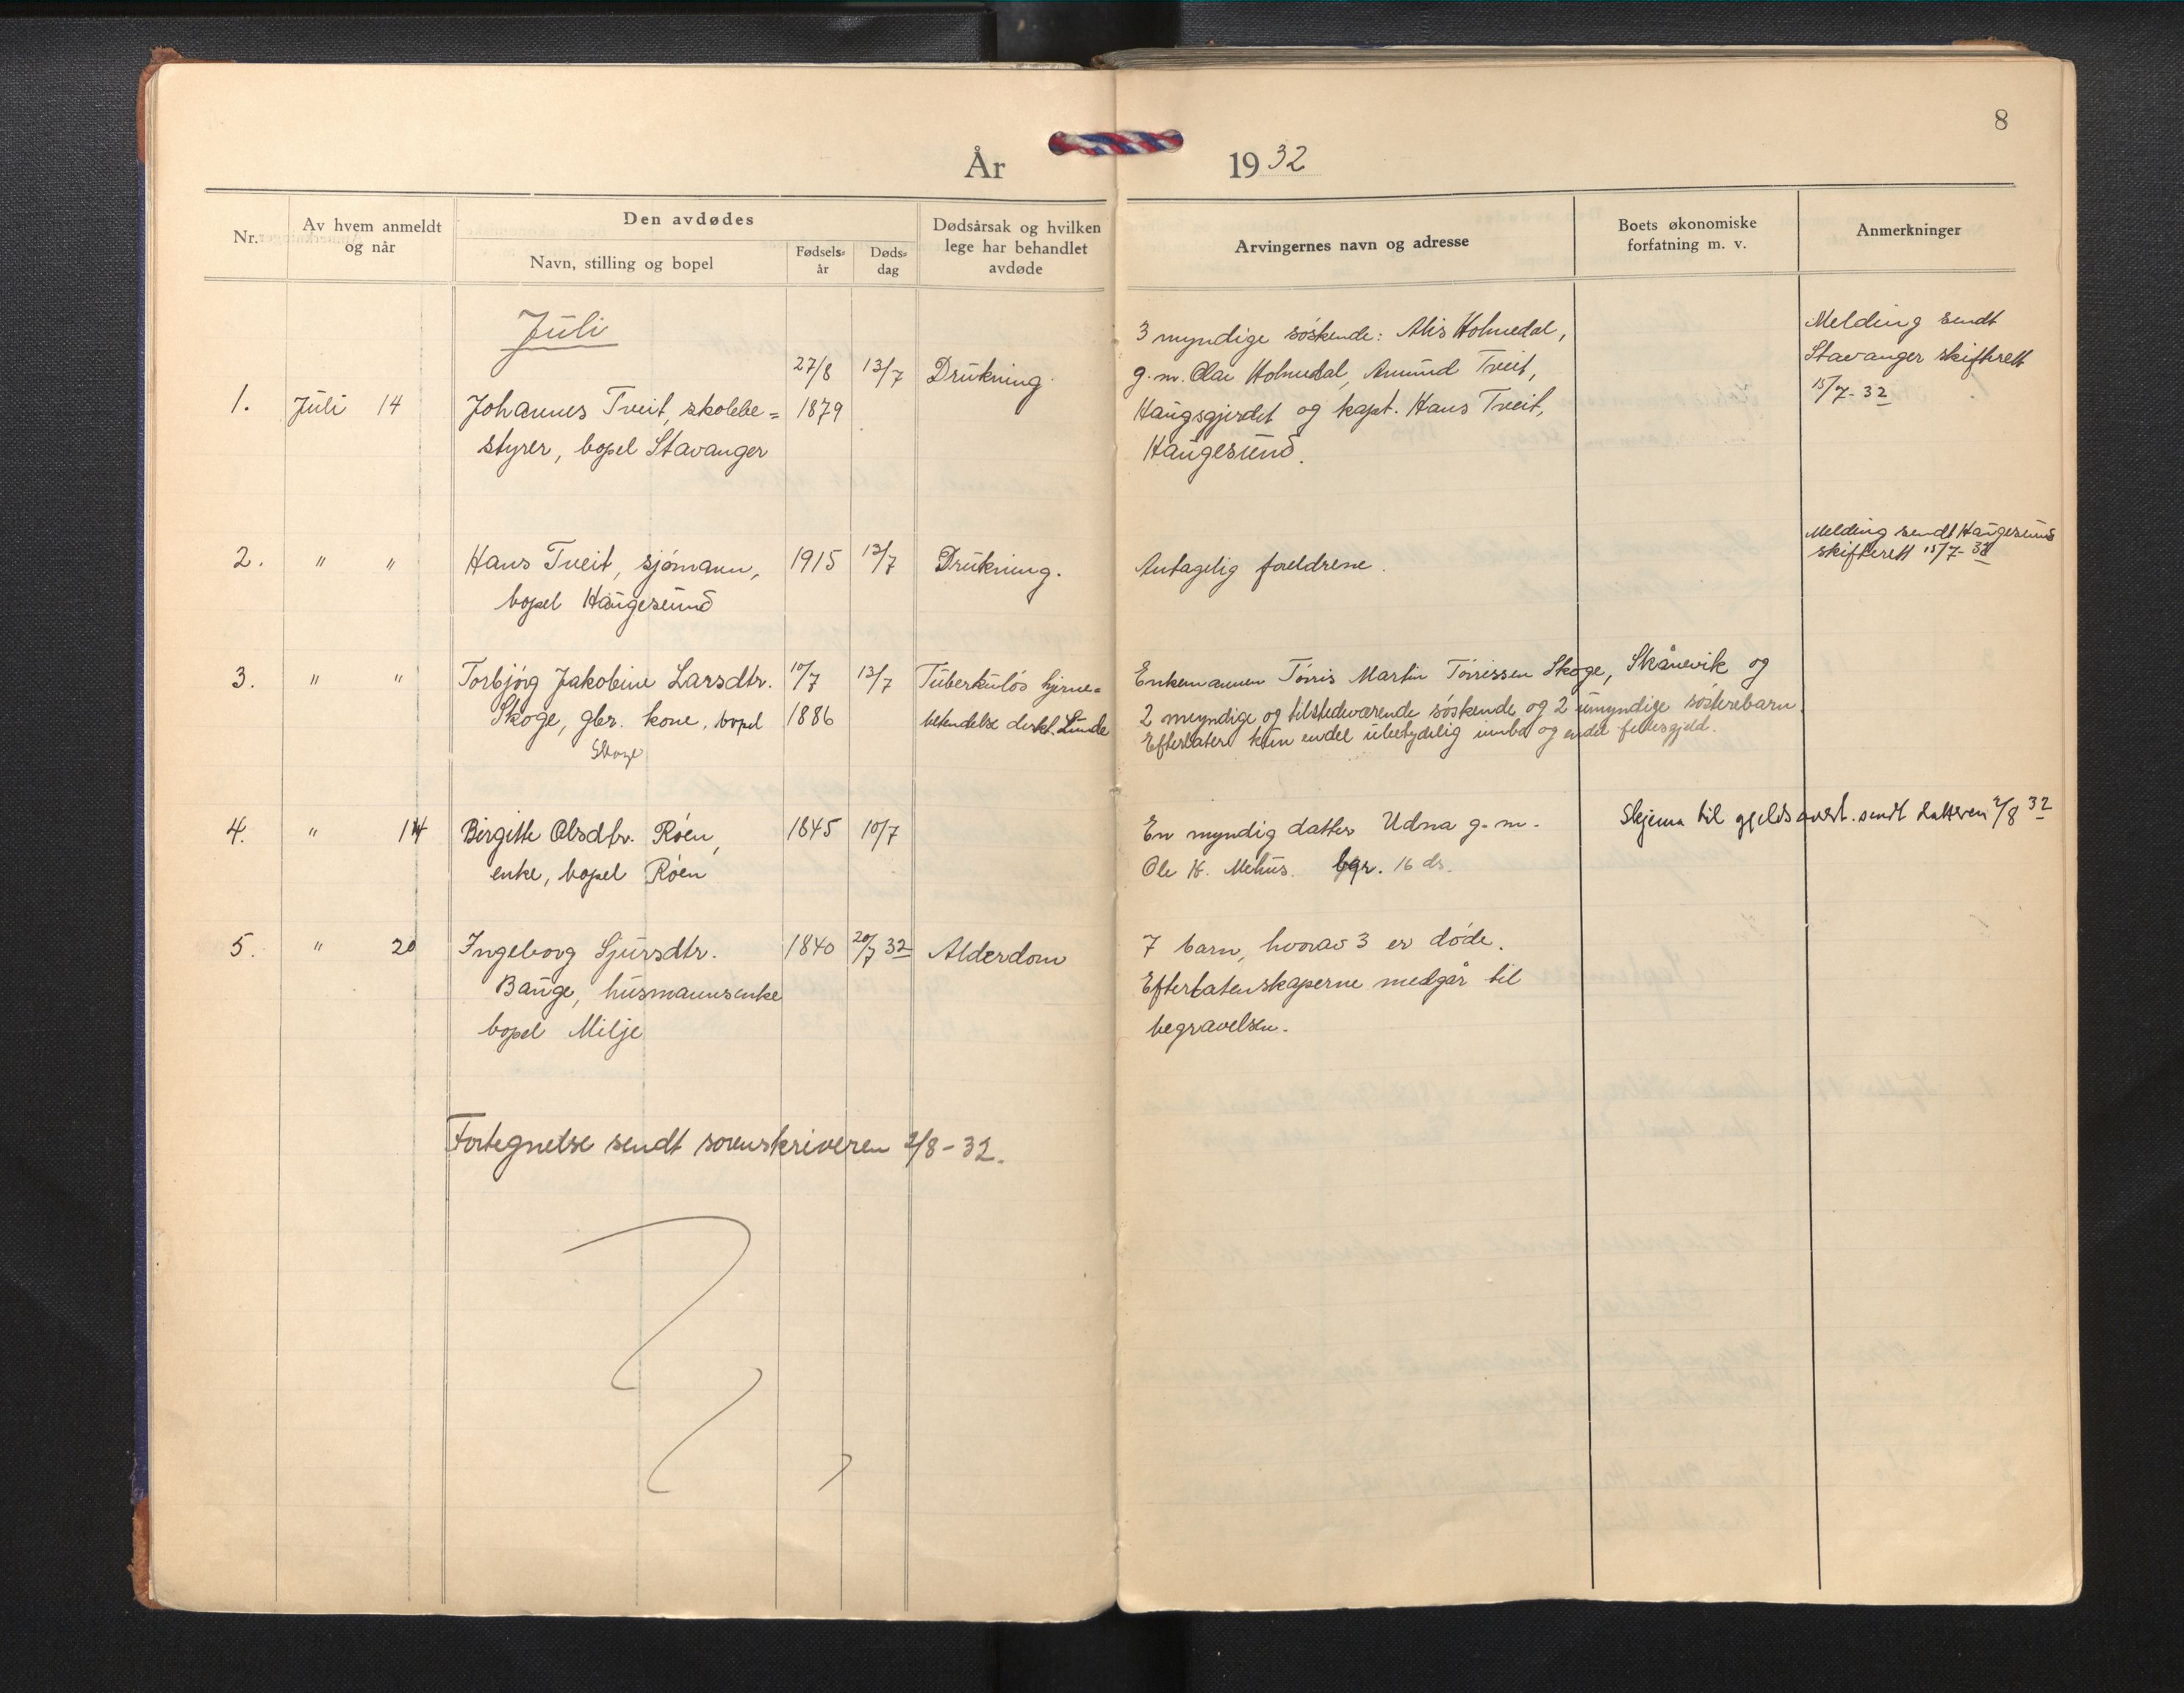 8
År 1932
Nr.
Av hvem anmeldt
og når
Den avdødes
Navn, stilling og bopel
Fødsels-
år
Døds-
dag
Dødsårsak og hvilken
lege har behandlet
avdøde
Arvingernes navn og adresse
Boets økonomiske
forfatning m. v.
Anmerkninger
Juli
1. Juli 14
Johannes Tveit, skolebe=
styrer, bopel Stavanger
27/8
1879
13/7
Drukning.
3 myndige søskende: Alis Holmedal,
g.m. Olai Holmedal, Amund Tveit,
Haugsgjerdet og kapt. Hans Tveit,
Haugesund.
Melding sendt
Stavanger skifterett
15/7-32
2. " "
Hans Tveit, sjømann,
bopel Haugesund
1915
13/7
Drukning.
Antagelig foreldrene.
Melding sendt Haugesund
skifterett 15/7-32
3. " "
Torbjørg Jakobine Larsdtr.
Skoge, gbr. kone, bopel
Skoge
10/7
1886
13/7
Tuberkuløs hjerne=
betendelse distkt. Lunde
Enkemannen Tørris Martin Tørrissen Skoge, Skånevik og
2 myndige og tilstedeværende søskende og 2 umyndige søsterebarn.
Efterlater kun endel ubetydelig innbo og endel fellesgjeld.
4. " 14
Birgitte Olsdtr. Røen,
enke, bopel Røen
1845
10/7
En myndig datter Udna g.m.
Ole K. Mehus. bgr. 16 ds.
Skjema til gjeldsovert. sendt datteren 2/8 32
5. " 20
Ingeborg Sjursdtr.
Bauge, husmannsenke
bopel Milje
1840
20/7 32
Alderdom
7 barn, hvorav 3 er døde.
Efterlatenskaperne medgår til
begravelsen.
Fortegnelse sendt sorenskriveren 2/8-32.